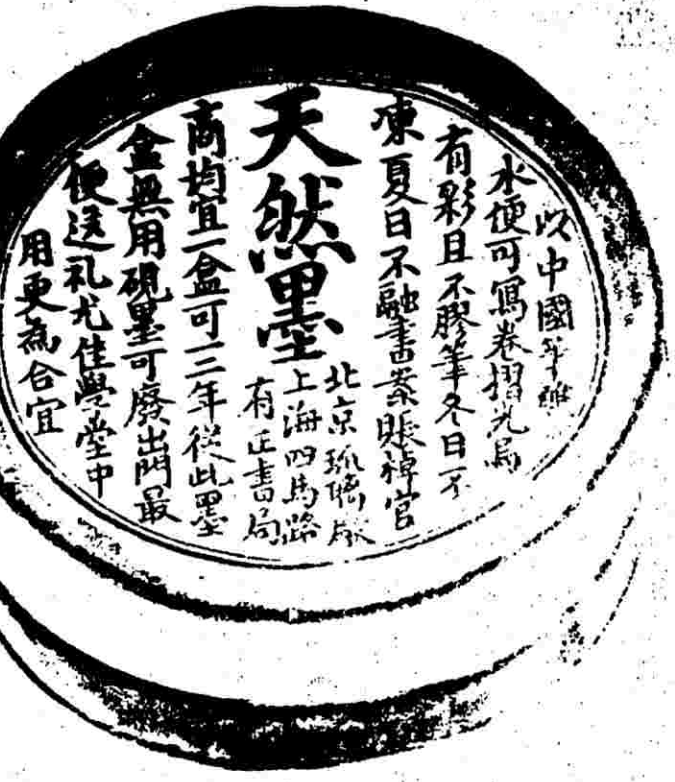 以中國筆蘸
水便可寫卷摺光烏
有彩且不膠筆冬日不
凍夏日不融書案賬棹官
天然墨
北京琉璃廠
上海四馬路
有正書局
商均宜一盒可三年從此墨
盒無用硯墨可廢出門最
便送礼尤佳學堂中
用更為合宜